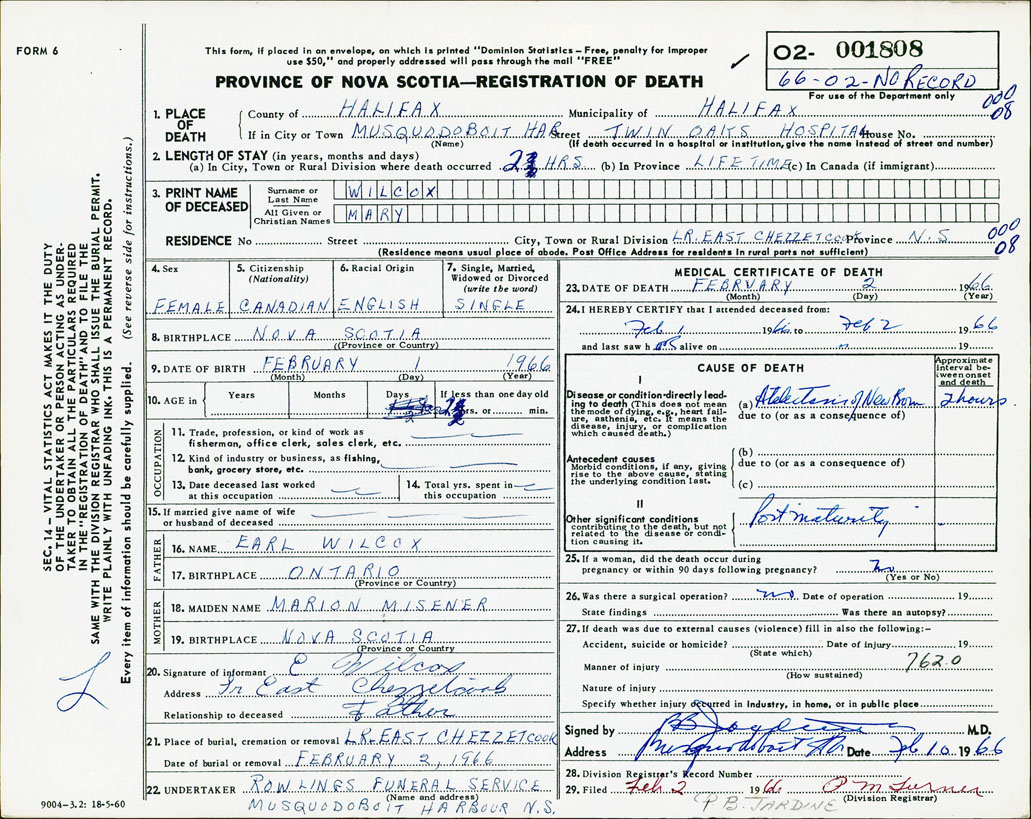 FORM 6
This form, if placed in an envelope, on which is printed "Dominion Statistics – Free, penalty for improper
use $50," and properly addressed will pass through the mail "FREE"
PROVINCE OF NOVA SCOTIA—REGISTRATION OF DEATH
O2- 001808
66-02-NO RECORD
For use of the Department only
000
08
1. PLACE OF DEATH
County of HALIFAX Municipality of HALIFAX
If in City or Town MUSQUODOBOIT HAR Street TWIN OAKS HOSPITAL House No.
(Name) (If death occurred in a hospital or institution, give the name instead of street and number)
2. LENGTH OF STAY (in years, months and days)
(a) In City, Town or Rural Division where death occurred HRS (b) In Province LIFE TIME (c) In Canada (if immigrant)
3. PRINT NAME OF DECEASED
Surname or Last Name WILCOX
All Given or Christian Names MARY
RESIDENCE No Street City, Town or Rural Division LR. EAST CHEZZETCOOK Province N.S
(Residence means usual place of abode. Post Office Address for residents in rural parts not sufficient)
000
08
4. Sex
FEMALE
5. Citizenship
(Nationality)
CANADIAN
6. Racial Origin
ENGLISH
7. Single, Married,
Widowed or Divorced
(write the word)
SINGLE
8. BIRTHPLACE NOVA SCOTIA
((Province or Country)
9. DATE OF BIRTH FEBRUARY 1 1966
(Month) (Day) (Year)
10. AGE in Years Months Days If less than one day old
hrs. or min.
OCCUPATION
11. Trade, profession, or kind of work as
fisherman, office clerk, sales clerk, etc.
12. Kind of industry or business, as fishing,
bank, grocery store, etc.
13. Date deceased last worked
at this occupation
14. Total yrs. spent in
this occupation
15. If married give name of wife
or husband of deceased
FATHER
16. NAME EARL WILCOX
17. BIRTHPLACE ONTARIO
(Province or Country)
MOTHER
18. MAIDEN NAME MARION MISENER
19. BIRTHPLACE NOVA SCOTIA
(Province or Country
20. Signature of informant E Wilcox
Address East Chezzetcook
Relationship to deceased Father
21. Place of burial, cremation or removal LR. EAST CHEZZETCOOK
Date of burial or removal FEBRUARY 2, 1966
22. UNDERTAKER ROWLINGS FUNERAL SERVICE
(Name and address)
MUSQUODOBOIT HARBOUR N.S.
9004-3.2: 18-5-60
MEDICAL CERTIFICATE OF DEATH
23. DATE OF DEATH FEBRUARY 2 1966
(Month) (Day) (Year)
24. I HEREBY CERTIFY that I attended deceased from:
Feb 1 1966 to Feb 2 1966
and last saw h alive on 19
CAUSE OF DEATH
Approximate
interval be-
tween onset
and death
I
Disease or condition directly lead-
ing to death (This does not mean
the mode of dying, e.g., heart fail-
ure, asthenia, etc. It means the
disease, injury, or complication
which caused death.)
(a) Atelectasis of New Born 2 hours
due to (or as a consequence of)
Antecedent causes
Morbid conditions, if any, giving
rise to the above cause, stating
the underlying condition last.
(b)
due to (or as a consequence of)
(c)
II
Other significant conditions
contributing to the death, but not
related to the disease or condi-
tion causing it.
Post maturity
25. If a woman, did the death occur during
pregnancy or within 90 days following pregnancy? No
(Yes or No)
26. Was there a surgical operation? no Date of operation 19
State findings Was there an autopsy?
27. If death was due to external causes (violence) fill in also the following:–
Accident, suicide or homicide? Date of injury 19
(State which)
Manner of injury 762.0
(How sustained)
Nature of injury
Specify whether injury occurred in industry, in home, or in public place
Signed by M.D.
Address Musquodoboit Hbr Date Feb 10 1966
28. Division Registrar's Record Number
29. Filed Feb 2 1966 P M Turner
P B. JARDINE (Division Registrar)
SEC. 14 – VITAL STATISTICS ACT MAKES IT THE DUTY
OF THE UNDERTAKER OR PERSON ACTING AS UNDER-
TAKER TO OBTAIN ALL THE PARTICULARS REQUIRED
IN THE "REGISTRATION OF DEATH" AND TO FILE THE
SAME WITH THE DIVISION REGISTRAR WHO SHALL ISSUE THE BURIAL PERMIT.
WRITE PLAINLY WITH UNFADING INK. THIS IS A PERMANENT RECORD.
Every item of information should be carefully supplied. (See reverse side for instructions.)